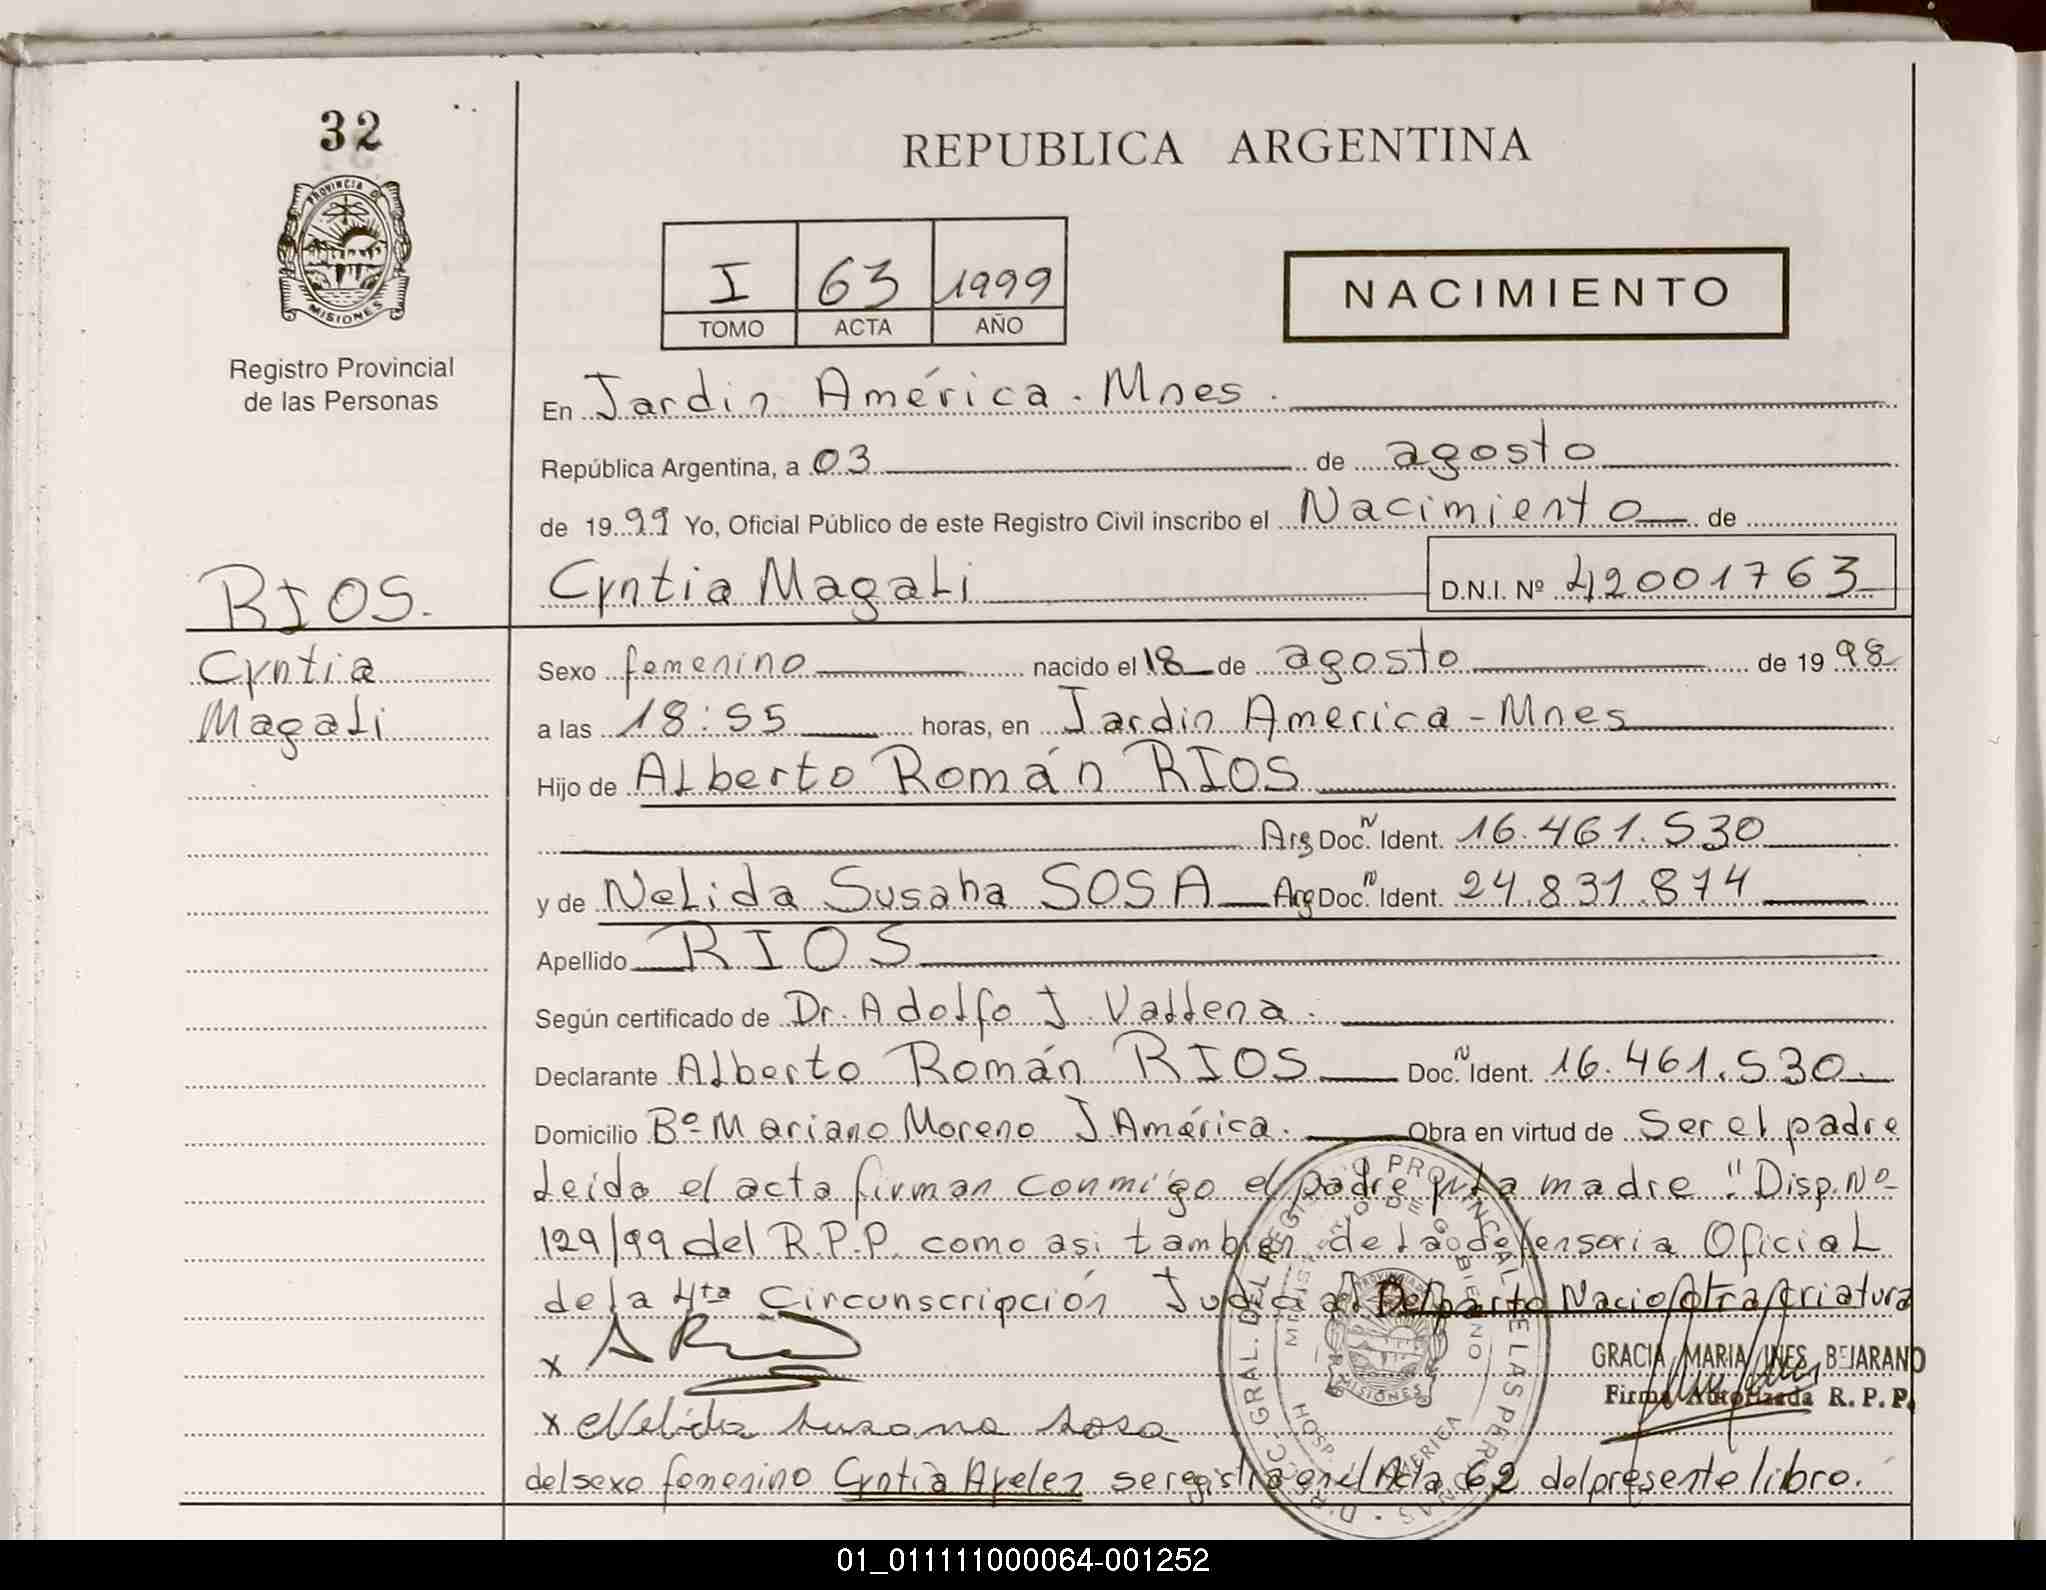 32
REPUBLICA ARGENTINA
PROVINCIA D
MISIONES
Registro Provincial
de las Personas
I 63 1999
TOMO ACTA AÑO
NACIMIENTO
En Jardin América. Mnes.
República Argentina, a 03 de agosto
de 19 99 Yo, Oficial Público de este Registro Civil inscribo el Nacimiento de
RIOS.
Cyntia Magali D.N.I. Nº 42001763
Cyntia
Magali
Sexo femenino nacido el 18 de agosto de 19 98
a las 18:55 horas, en Jardin America - Mnes
Hijo de Alberto Román RIOS
Arg Doc. N Ident. 16.461.530
y de Nelida Susana SOSA Arg Doc. N Ident. 24.831.874
Apellido RIOS
Según certificado de Dr. Adolfo J.
Declarante Alberto Román RIOS Doc. N Ident. 16.461.530.
Domicilio Bº Mariano Moreno J. América. Obra en virtud de Ser el padre
Leida el acta firman conmigo el padre y la madre " Disp. Nº
129/99 del R.P.P. como asi tambien de la defensoria Oficial
de la 4ta Circunscripción Judicial Del parto Nacio otra criatura
x A R
GRACIA MARIA INES BEJARANO
Firma Autorizada R. P. P.
x Nelida Susana Sosa
del sexo femenino Cyntia Ayelen se registra en el Acta 62 del presente libro.
DIRECC. GRAL. DEL REGISTRO PROVINCIAL DE LAS PERSONAS
MINISTERIO DE GOBIERNO
PROVINCIA
MISIONES
HOSP. AMERICA
01_011111000064-001252